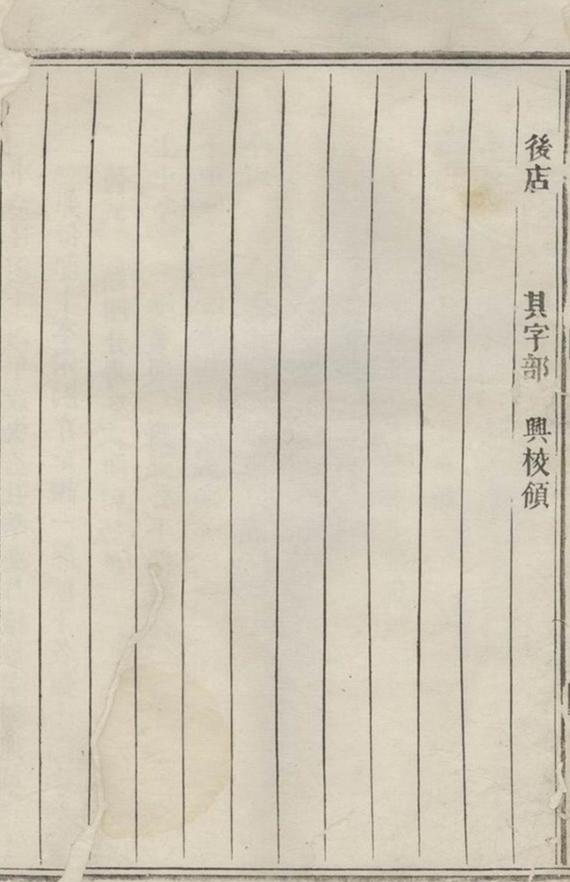 後店　其字部　興校領